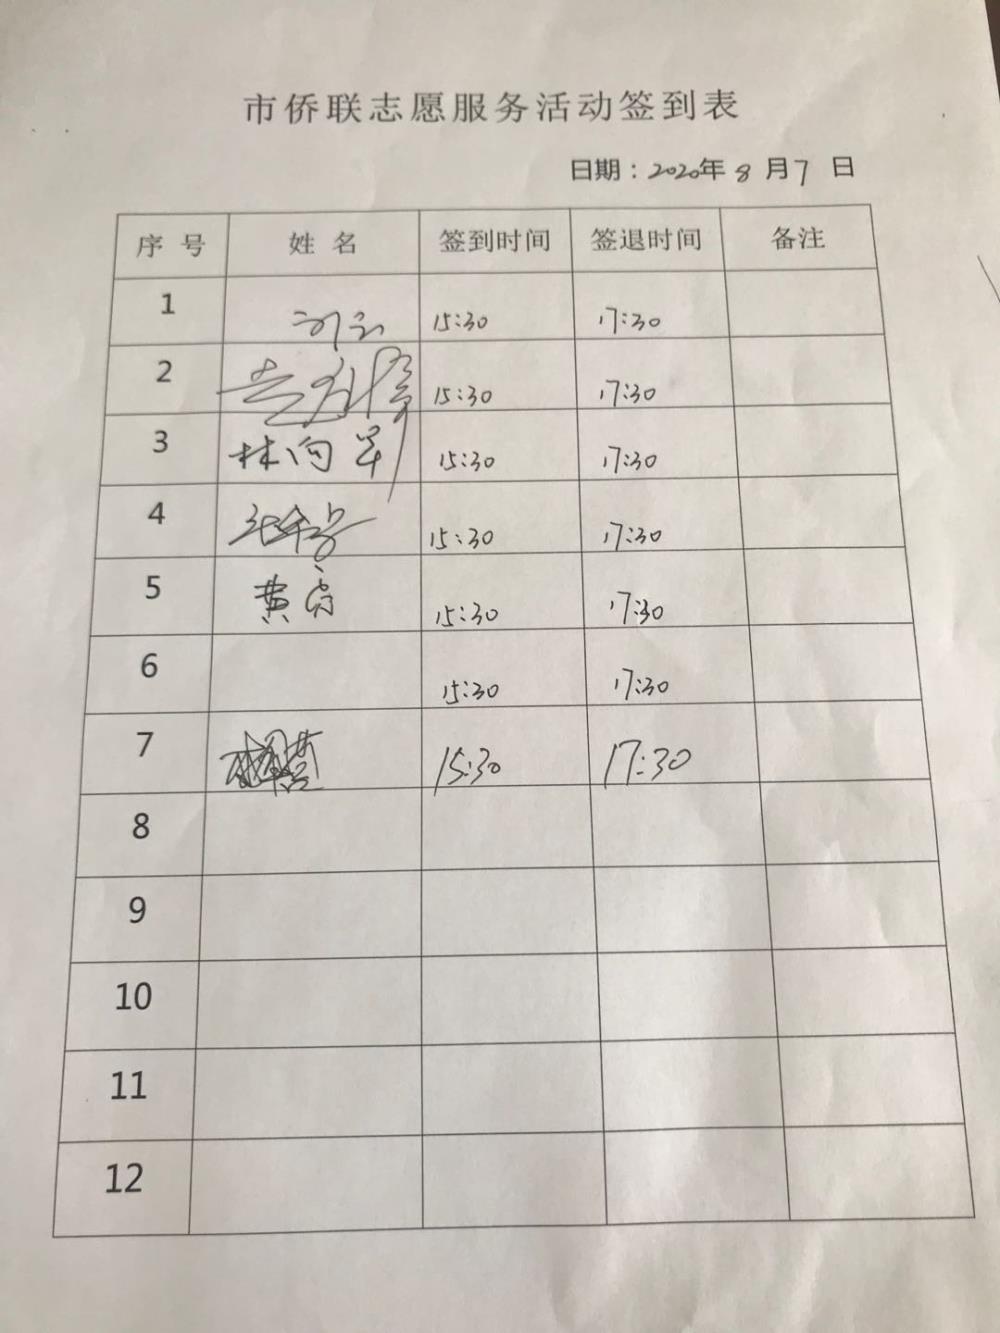 市侨联志愿服务活动签到表
日期：2020年 8 月 7 日
序 号 姓 名 签到时间 签退时间 备注
1 15:30 17:30
2 15:30 17:30
3 林向军 15:30 17:30
4 15:30 17:30
5 黄 15:30 17:30
6 15:30 17:30
7 15:30 17:30
8
9
10
11
12